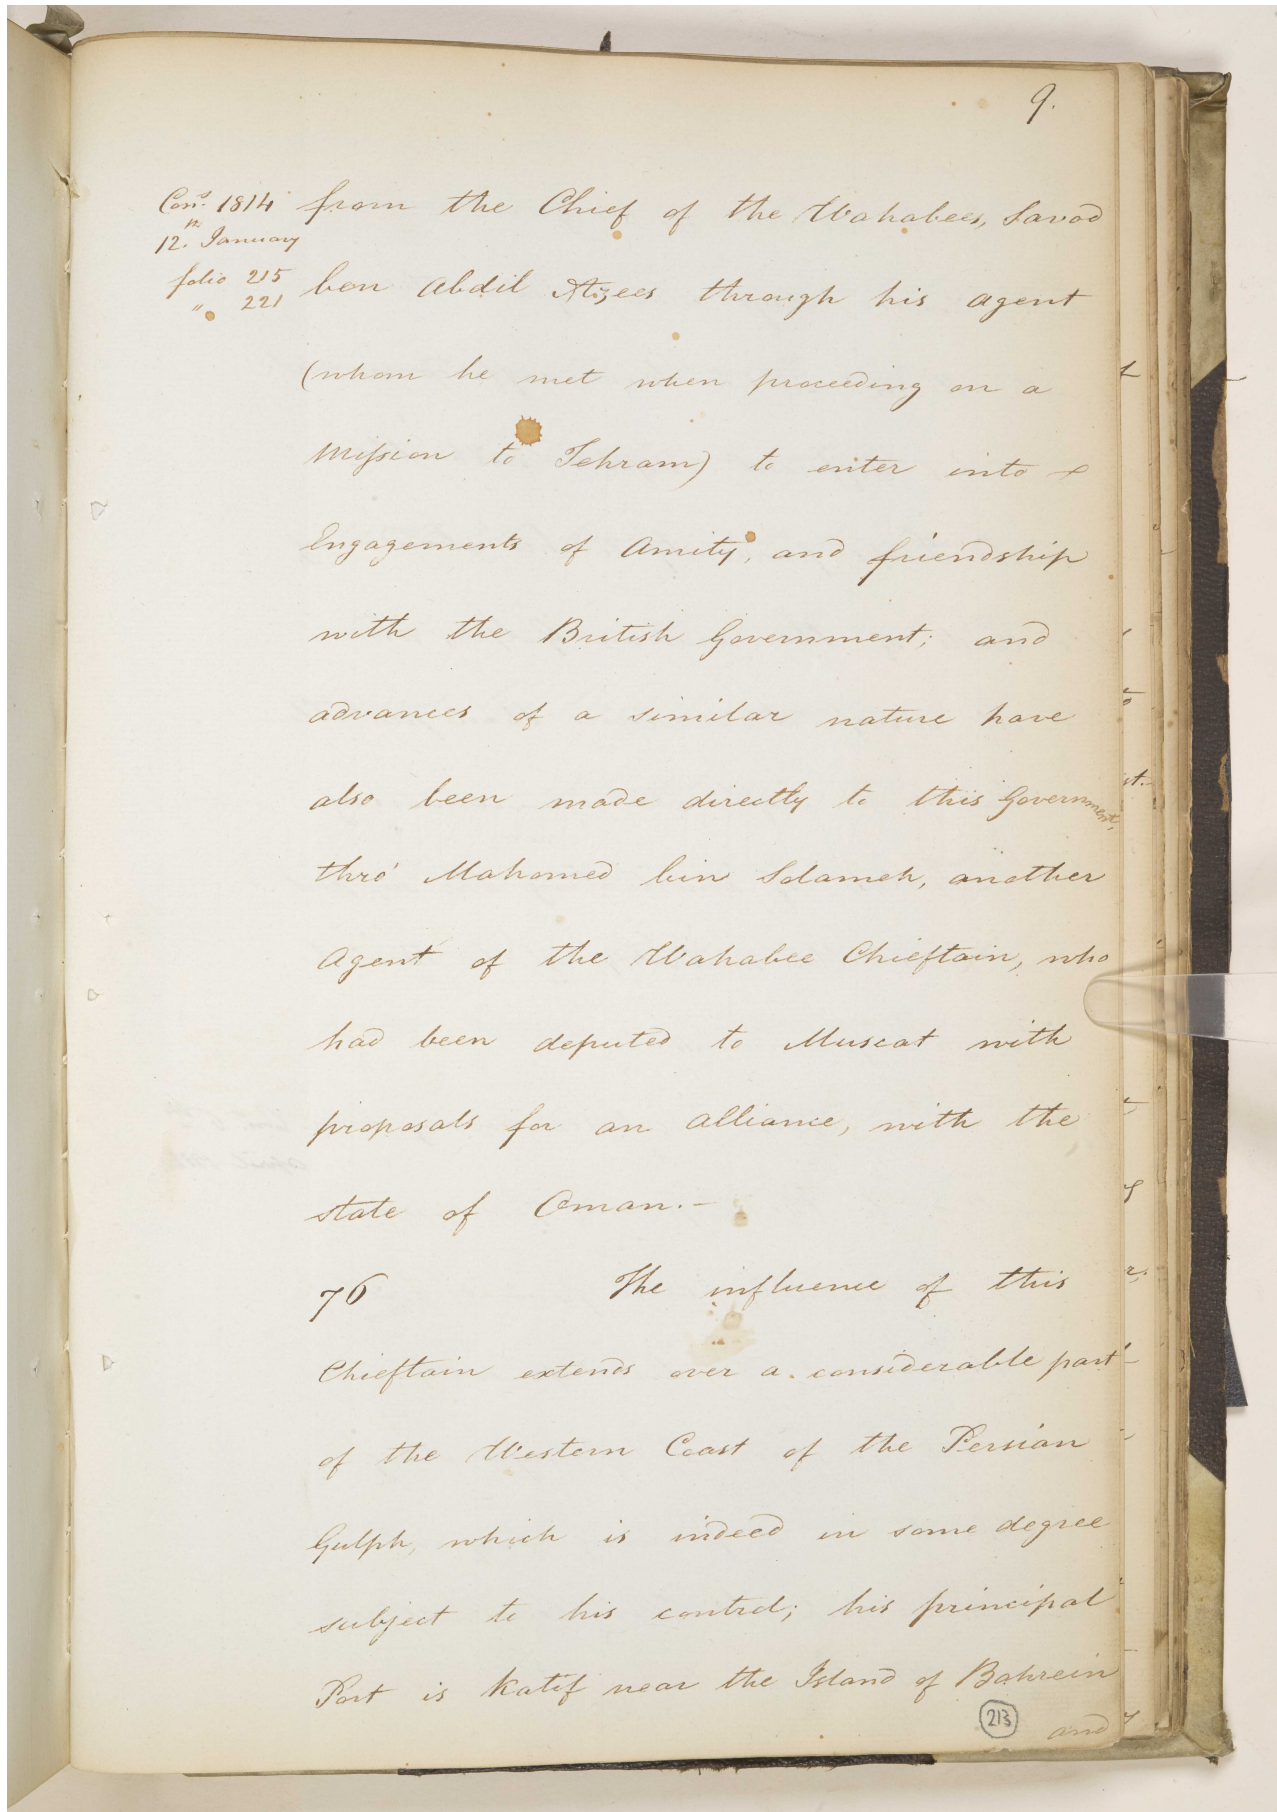 9.
Cons. 1814
12th. January
folio 215
" 221
from the Chief of the Wahabees, Savod
ben Abdil Azees through his agent
(whom he met when proceeding on a
Mission to Tehram) to enter into
Engagements of Amity, and friendship
with the British Government; and
advances of a similar nature have
also been made directly to this Government,
thro' Mahomed bin Solameh, another
Agent of the Wahabee Chieftain, who
had been deputed to Muscat with
proposals for an alliance, with the
state of Oman.-
76 The influence of this
Chieftain extends over a considerable part
of the Western Coast of the Persian
Gulph, which is indeed in some degree
subject to his control; his principal
Port is Katif near the Island of Bahrein
213
and